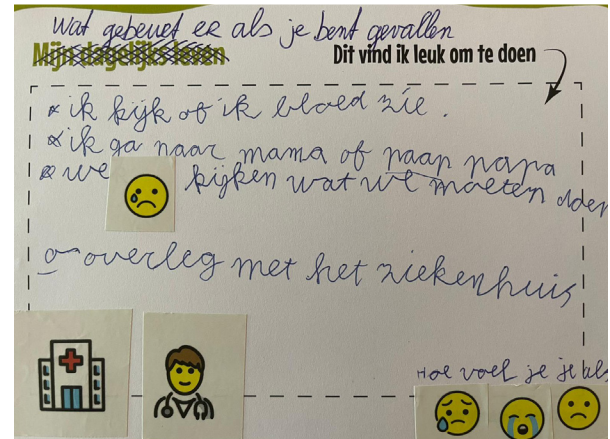 Wat gebeurt er als je bent gevallen
Mijn dagelijks leven
Dit vind ik leuk om te doen
* ik kijk of ik bloed zie.
* ik ga naar mama of paap papa
* we kijken wat we moeten doen
o overleg met het ziekenhuis
Hoe voel je je als